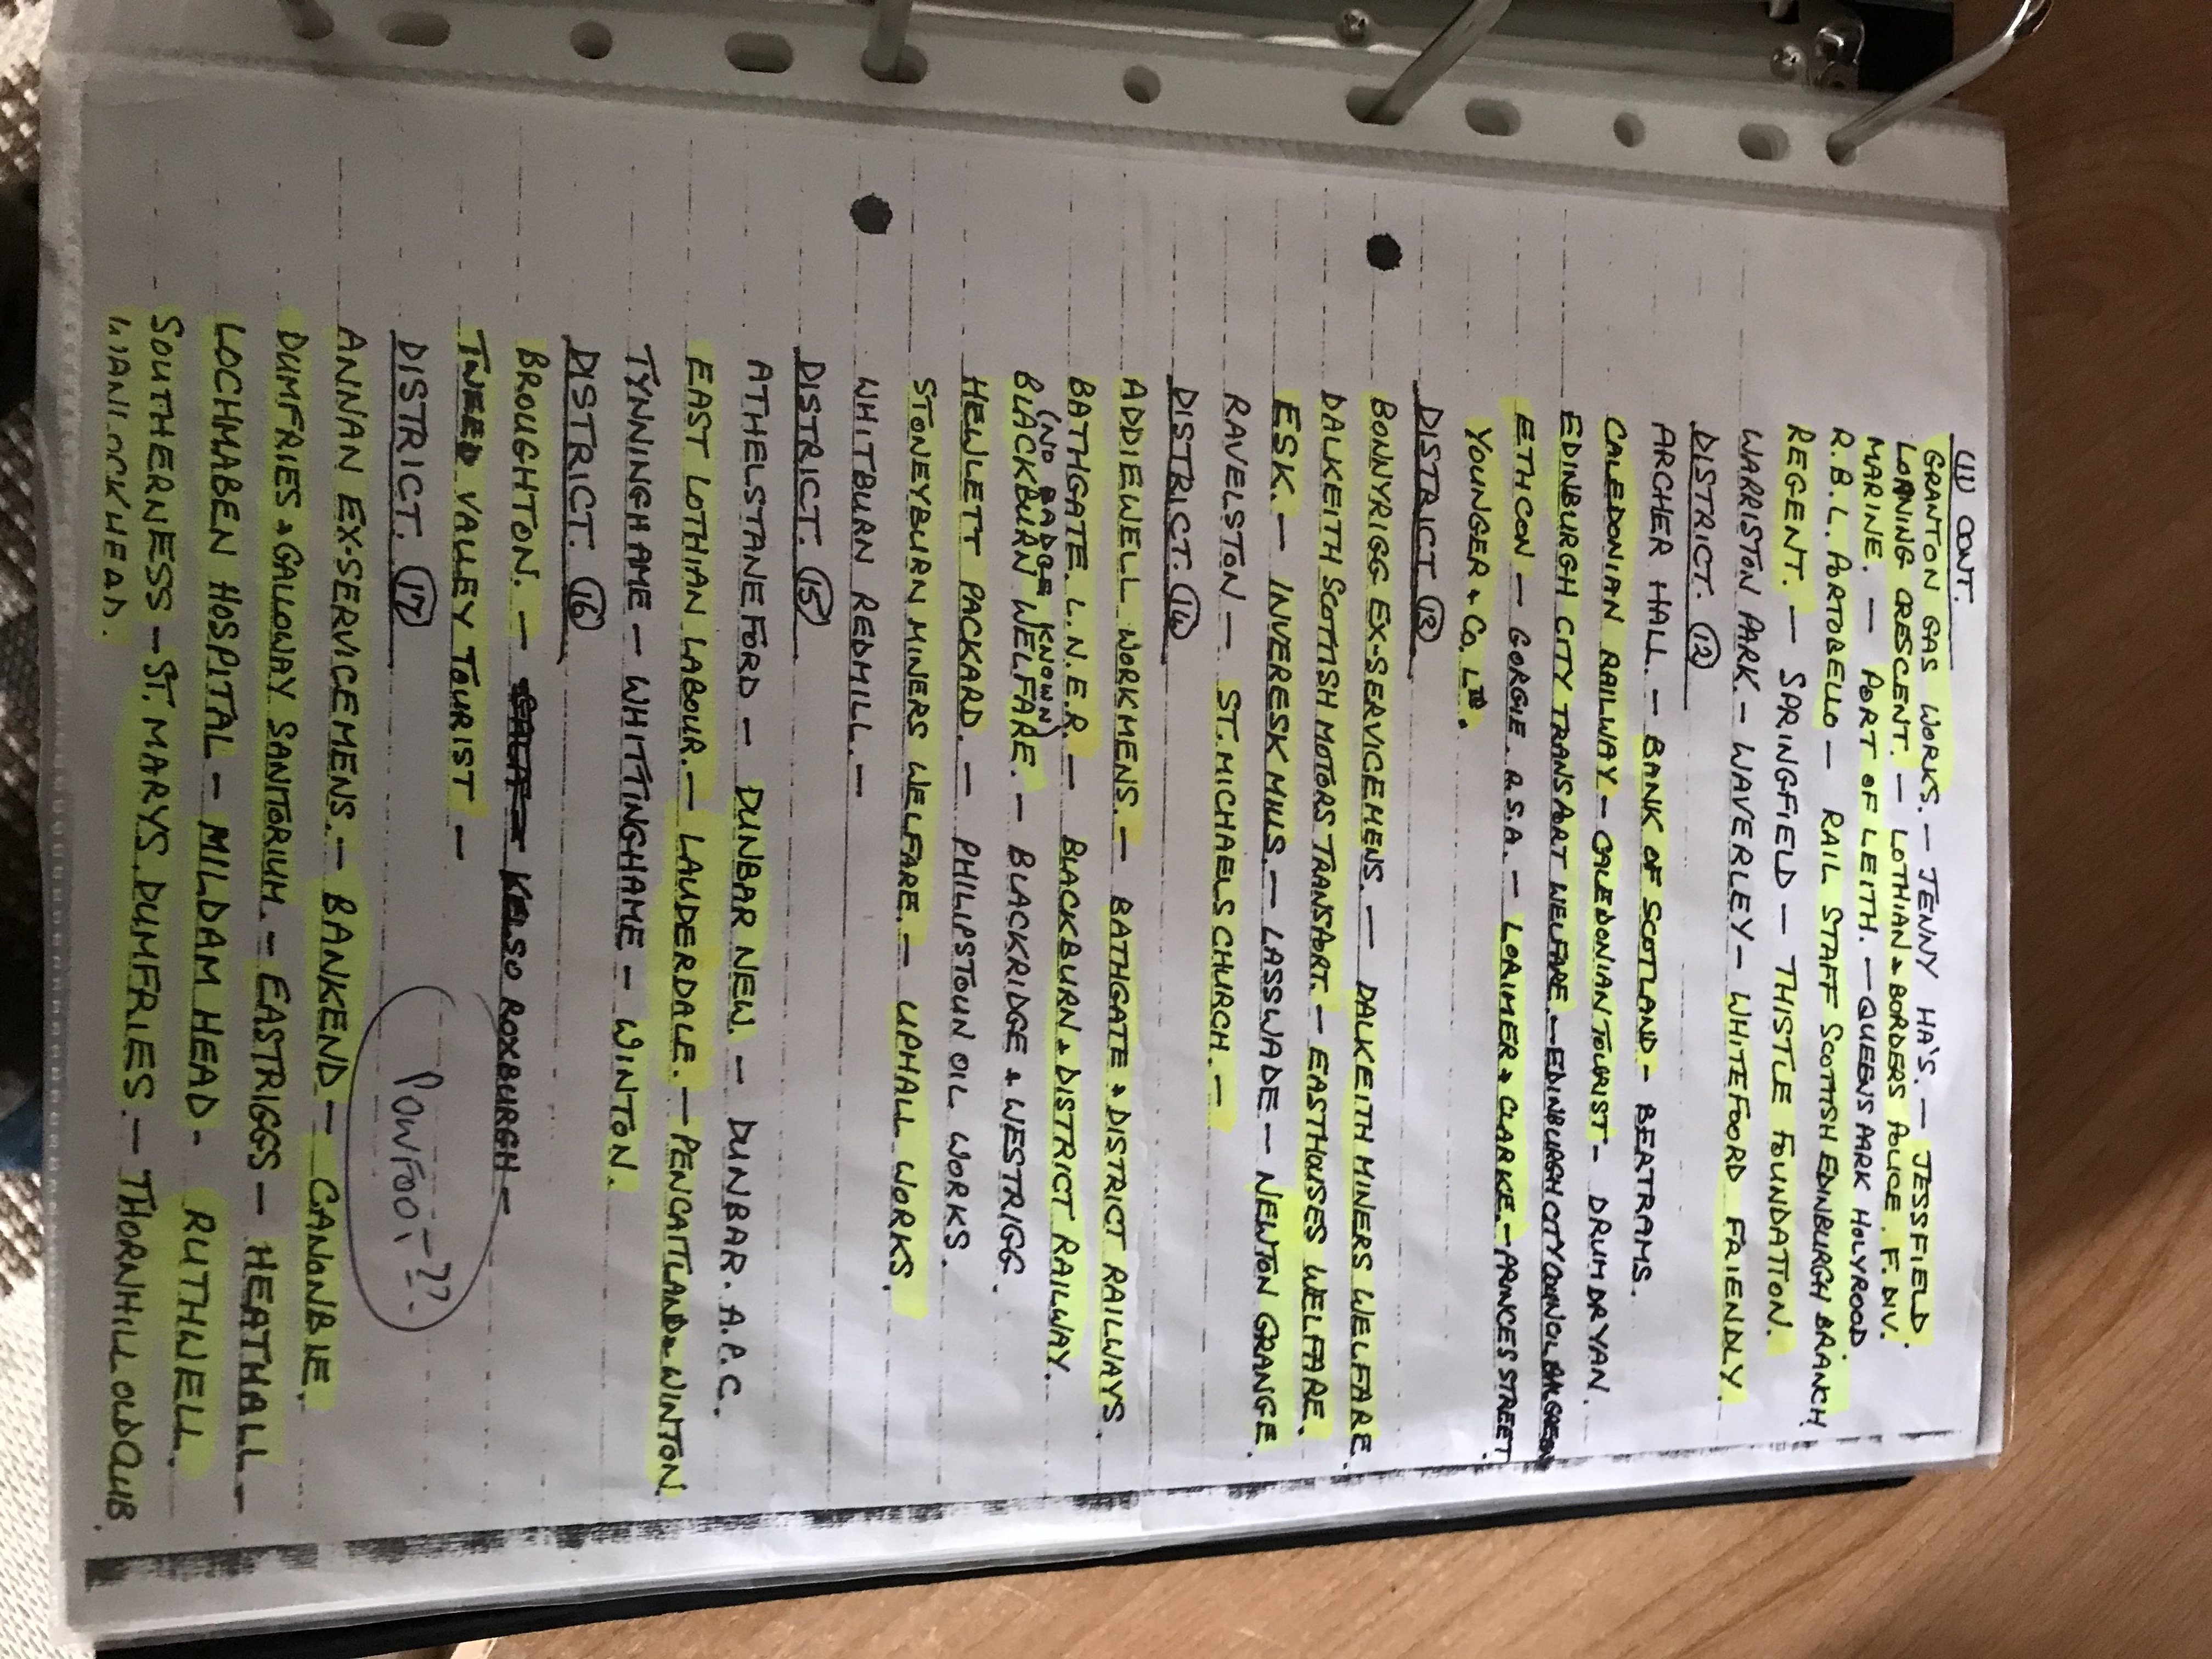 (11) CONT.
GRANTON GAS WORKS. — JENNY HA'S. — JESSFIELD.
LORNING CRESCENT. — LOTHIAN & BORDERS POLICE. F. DIV.
MARINE. — PORT OF LEITH. — QUEENS PARK HOLYROOD
R.B.L. PORTOBELLO — RAIL STAFF SCOTTISH EDINBURGH BRANCH.
REGENT. — SPRINGFIELD — THISTLE FOUNDATION.
WARRISTON PARK — WAVERLEY — WHITEFOORD FRIENDLY.
DISTRICT. (12)
ARCHER HALL. — BANK OF SCOTLAND — BEATRAMS.
CALEDONIAN RAILWAY — CALEDONIAN TOURIST — DRUMDRYAN.
EDINBURGH CITY TRANSPORT WELFARE. — EDINBURGH CITY COUNCIL BALGREEN
ETHCON — GORGIE. R.S.A. — LORIMER & CLARKE. — PRINCES STREET.
YOUNGER & CO. LTD.
DISTRICT (13)
BONNYRIGG EX-SERVICEMENS. — DALKEITH MINERS WELFARE.
DALKEITH SCOTTISH MOTORS TRANSPORT. — EASTHOUSES WELFARE.
ESK. — INVERESK MILLS. — LASSWADE — NEWTON GRANGE.
RAVELSTON — ST. MICHAELS CHURCH. —
DISTRICT. (14)
ADDIEWELL WORKMENS. — BATHGATE & DISTRICT RAILWAYS.
BATHGATE. L.N.E.R. — BLACKBURN & DISTRICT RAILWAY.
(NO BADGE KNOWN)
BLACKBURN WELFARE. — BLACKRIDGE & WESTRIGG.
HEWLETT PACKARD. — PHILIPSTOUN OIL WORKS.
STONEYBURN MINERS WELFARE. — UPHALL WORKS.
WHITBURN REDMILL. —
DISTRICT. (15)
ATHELSTANEFORD — DUNBAR NEW. — DUNBAR. A.P.C.
EAST LOTHIAN LABOUR. — LAUDERDALE. — PENCAITLAND & WINTON.
TYNNINGHAME — WHITTINGHAME — WINTON.
DISTRICT. (16)
BROUGHTON. — KELSO ROXBURGH —
TWEED VALLEY TOURIST —
DISTRICT. (17)
POWFOOT, - ??.
ANNAN EX-SERVICEMENS. — BANKEND — CANONBIE.
DUMFRIES & GALLOWAY SANITORIUM. — EASTRIGGS — HEATHALL —
LOCHMABEN HOSPITAL — MILDAM HEAD - RUTHWELL.
SOUTHERNESS — ST. MARYS DUMFRIES — THORNHILL OLD CLUB.
WANLOCKHEAD.